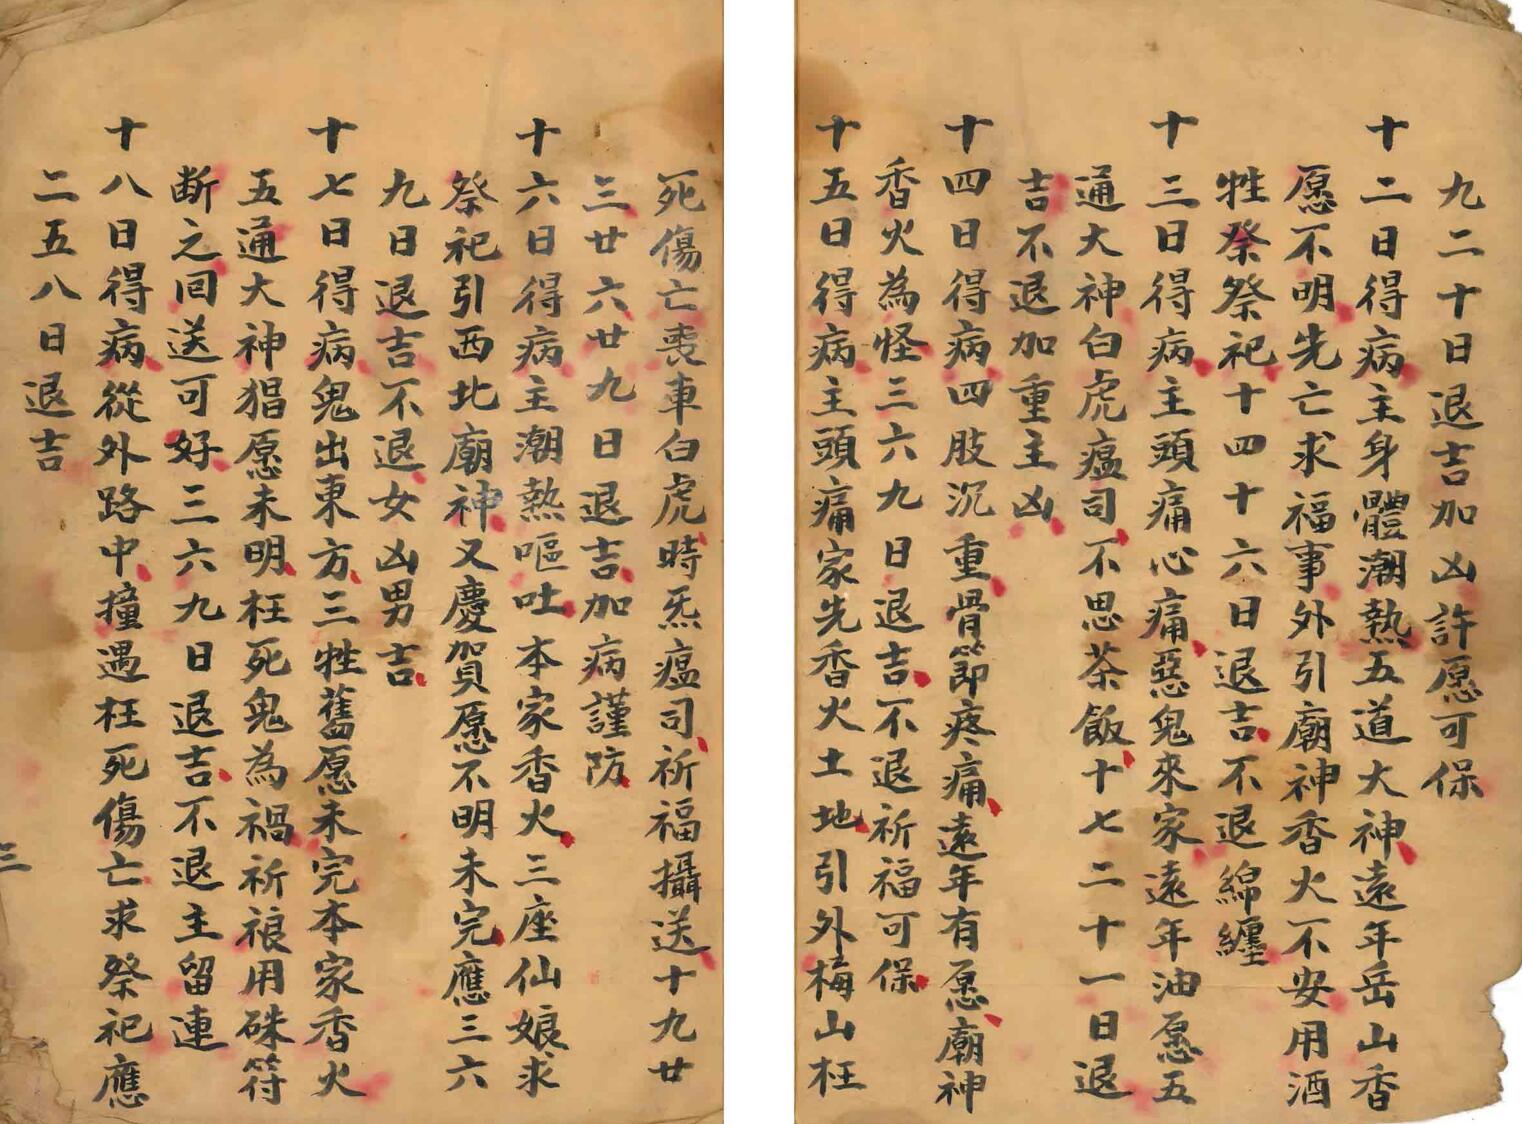 九二十日退吉加凶許愿可保
十二日得病主身體潮熱五道大神遠年岳山香
愿不明先亡求福事外引廟神香火不安用酒
牲祭祭祀十四十六日退吉不退綿纏
十三日得病主頭痛心痛惡鬼來家遠年油愿五
通大神白虎瘟司不思茶飯十七二十一日退
吉不退加重主凶
十四日得病四肢沉重骨節疼痛遠年有愿廟神
香火為怪三六九日退吉不退祈福可保
十五日得病主頭痛家先香火土地引外梅山枉
死傷亡喪車白虎時炁瘟司祈福攝送十九廿
三廿六廿九日退吉加病謹防
十六日得病主潮熱嘔吐本家香火三座仙娘求
祭祀引西北廟神又慶賀愿不明未完應三六
九日退吉不退女凶男吉
十七日得病鬼出東方三牲舊愿未完本家香火
五通大神猖愿未明枉死鬼為禍祈禳用硃符
断之回送可好三六九日退吉不退主留連
十八日得病從外路中撞遇枉死傷亡求祭祀應
二五八日退吉
三